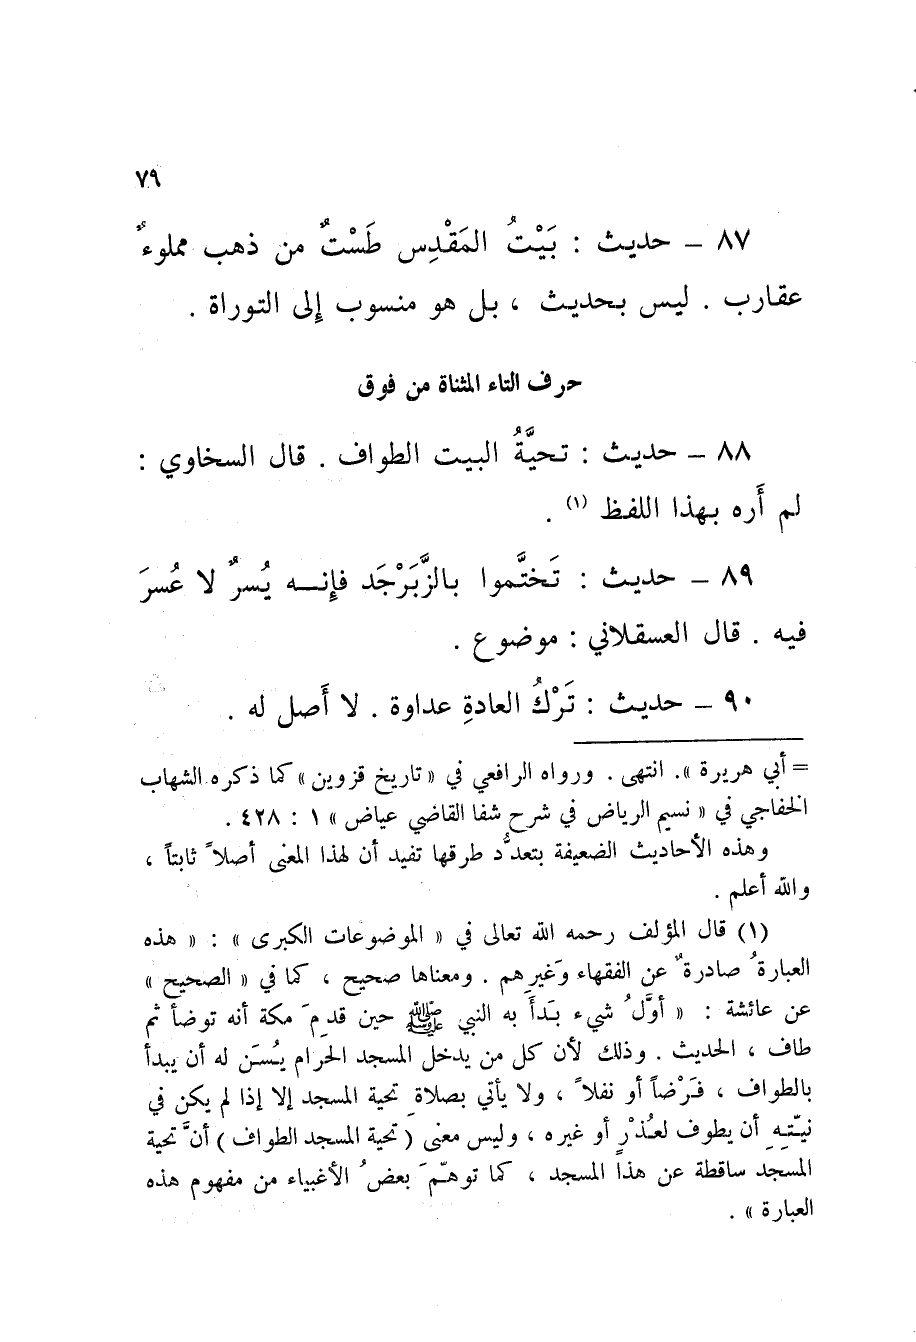 ٧٩
٨٧ – حديث : بَيْتُ المَقْدِس طَسْتٌ من ذهب مملوءٌ
عقارب . ليس بحديث ، بل هو منسوب إِلى التوراة .
حرف التاء المثناة من فوق
٨٨ – حديث : تحيَّةُ البيت الطواف . قال السخاوي :
لم أَره بهذا اللفظ (١) .
٨٩ – حديث : تَختَّموا بالزَّبَرْجَد فإِنه يُسرٌ لا عُسرَ
فيه . قال العسقلاني : موضوع .
٩٠ – حديث : تَرْكُ العادةِ عداوة . لا أَصل له .
= أبي هريرة » . انتهى . ورواه الرافعي في « تاريخ قزوين » كما ذكره الشهاب
الخفاجي في « نسيم الرياض في شرح شفا القاضي عياض » ١ : ٤٢٨ .
وهذه الأحاديث الضعيفة بتعدُّد طرقها تفيد أن لهذا المعنى أصلاً ثابتاً ،
والله أعلم .
(١) قال المؤلف رحمه الله تعالى في « الموضوعات الكبرى » : « هذه
العبارةُ صادرةٌ عن الفقهاء وَغيرهم . ومعناها صحيح ، كما في « الصحيح »
عن عائشة : « أوَّلُ شيء بَدأَ به النبي ﷺ حين قدِمَ مكة أنه توضأ ثم
طاف ، الحديث . وذلك لأن كل من يدخل المسجد الحرام يُسَن له أن يبدأ
بالطواف ، فَرْضاً أو نفلاً ، ولا يأتي بصلاةِ تحية المسجد إلا إذا لم يكن في
نيّتهِ أن يطوف لعُذْرٍ أو غيره ، وليس معنى ( تحية المسجد الطواف ) أنَّ تحية
المسجد ساقطة عن هذا المسجد ، كما توهّمَ بعضُ الأغبياء من مفهوم هذه
العبارة » .